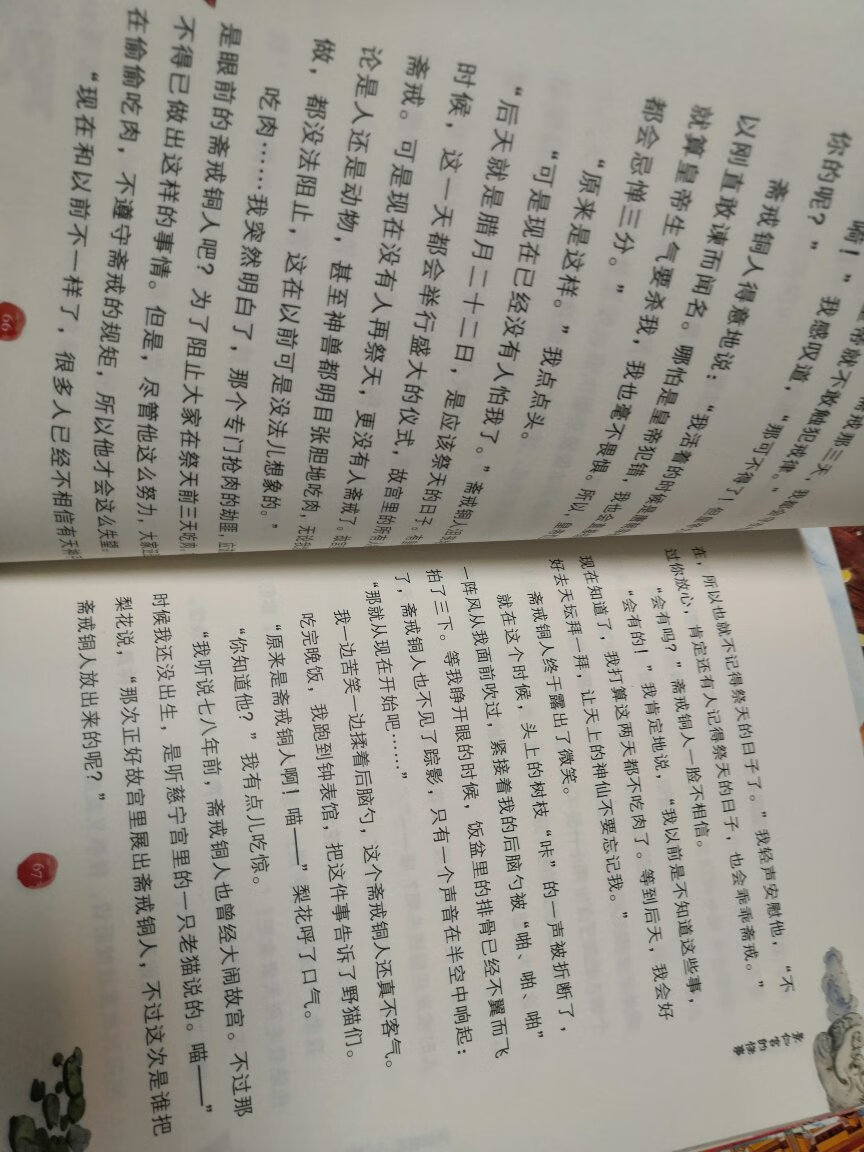 帝就不敢触犯戒律。”
！”我感叹道，“那可不得了！
你的呢？”
斋戒铜人得意地说：“我活着的时候是
以刚直敢谏而闻名。哪怕是皇帝犯错，我也会直
就算皇帝生气要杀我，我也毫不畏惧。所以，
都会忌惮三分。”
“原来是这样。”我点点头。
“可是现在已经没有人怕我了。”斋戒铜人
“后天就是腊月二十二日，是应该祭天的日子。
时候，这一天都会举行盛大的仪式，故宫里的所有人
斋戒。可是现在没有人再祭天，更没有人斋戒了。
论是人还是动物，甚至神兽都明目张胆地吃肉，无论我
做，都没法阻止，这在以前可是没法儿想象的。”
吃肉……我突然明白了，那个专门抢肉的劫匪，应
是眼前的斋戒铜人吧？为了阻止大家在祭天前三天吃肉，
不得已做出这样的事情。但是，尽管他这么努力，大家
在偷偷吃肉，不遵守斋戒的规矩，所以他才会这么失望。
“现在和以前不一样了，很多人已经不相信有天神
66
在，所以也就不记得祭天的日子了。”我轻声安慰他，“不
过你放心，肯定还有人记得祭天的日子，也会乖乖斋戒。”
“会有吗？”斋戒铜人一脸不相信。
“会有的！”我肯定地说，“我以前是不知道这些事，
现在知道了，我打算这两天都不吃肉了。等到后天，我会好
好去天坛拜一拜，让天上的神仙不要忘记我。”
斋戒铜人终于露出了微笑。
就在这个时候，头上的树枝“咔”的一声被折断了，
一阵风从我面前吹过，紧接着我的后脑勺被“啪、啪、啪”
拍了三下。等我睁开眼的时候，饭盆里的排骨已经不翼而飞
了，斋戒铜人也不见了踪影，只有一个声音在半空中响起：
“那就从现在开始吧……”
我一边苦笑一边揉着后脑勺，这个斋戒铜人还真不客气。
吃完晚饭，我跑到钟表馆，把这件事告诉了野猫们。
“原来是斋戒铜人啊！喵——”梨花呼了口气。
“你知道他？”我有点儿吃惊。
“我听说七八年前，斋戒铜人也曾经大闹故宫。不过那
时候我还没出生，是听慈宁宫里的一只老猫说的。喵——”
梨花说，“那次正好故宫里展出斋戒铜人，不过这次是谁把
斋戒铜人放出来的呢？”
67